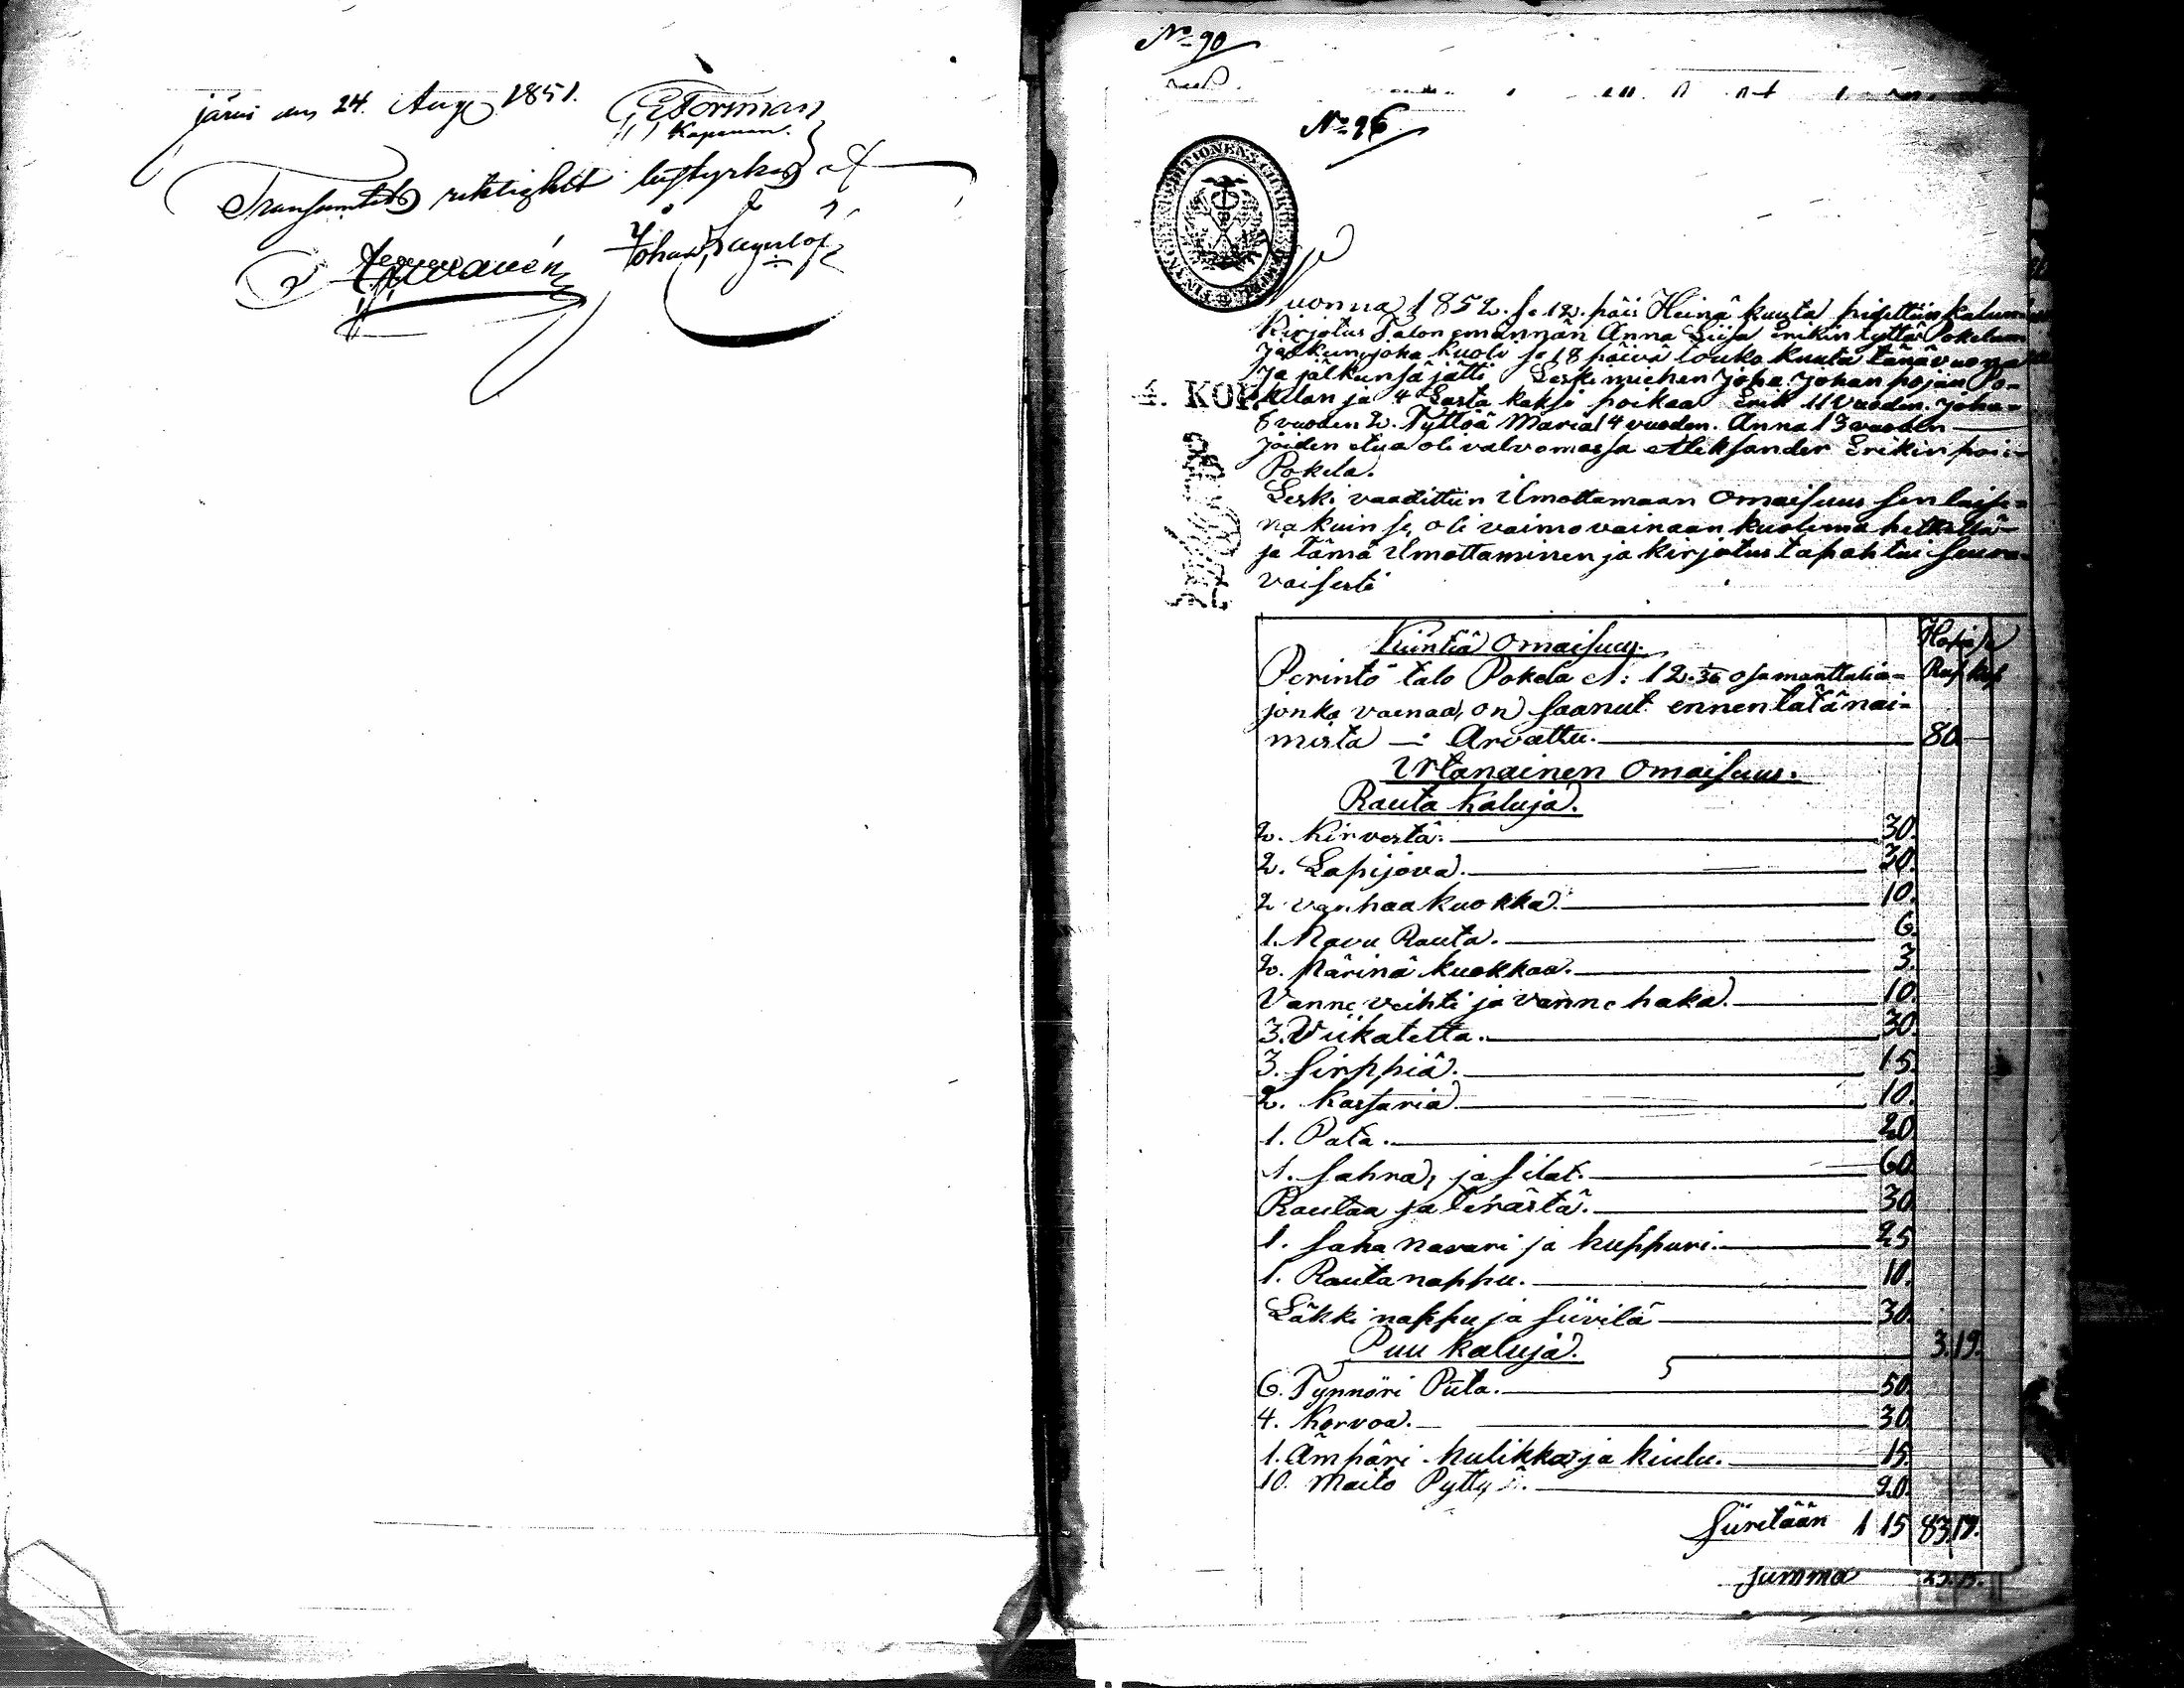 järvi den 24. Aug 1851.
Transumtets riktighet betyrkas
Johan
No 90
No 96
4. KOP.
Vuonna 1852. se 12. päiv Heinä kuuta pidettiin kalun
kirjotus Talon emännän Anna Liisa Erikin tyttä Pokelan
Jälkun, joka kuoli se 18 päivä touko kuuta tänä vuonna
ja jälkensä jätti Leskimiehen Joha Johan pojan Po-
kelan ja 4 Lasta kaksi poikaa Erik 11 vuoden. Joha-
8 vuoden 2. Tyttöä Maria 14 vuoden. Anna 13 vuoden
joiden etua oli valvomassa Aleksander Erikin poi-
Pokela.
Leski vaadittiin Ilmottamaan omaisuus sen laise-
na kuin se, oli vaimo vainaan kuolema hetkellä-
ja tämä Ilmottaminen ja kirjotus tapahtui seura-
vaisesti
Kiintiä omaisuus. Hopiassa
Perintö talo Pokela N: 12. osa manttalia- Rup kop
jonka vainaa, on saanut ennen tätä nai-
mista — Arvattu. 80
Irtanainen omaisuus.
Rauta kaluja.
2. kirvestä. 30.
2. Lapijova. 20.
2 vanhaa kuokka. 10.
1. Navu Rauta. 6.
2. Närinä kuokkaa. 3.
Vanne veihti ja vanne haka. 10.
3. Viikatetta. 30.
3. Sirppiä. 15.
2. kassaria 10.
1. Pata. 20
1. Sahra, ja silat. 60
Rautaa ja terästä. 30
1. Saha navari ja kuppuri. 25
1. Rautanappu. 10.
Läkki nappu ja siivilä 30.
Puu kaluja. 3.19.
6. Tynnöri Piita. 50.
4. korvoa. 30
1. Ämpäri kulikka ja kiulu. 15.
10. Maito Pyttyä. 20.
Siiretään 1 15 83.19.
summa